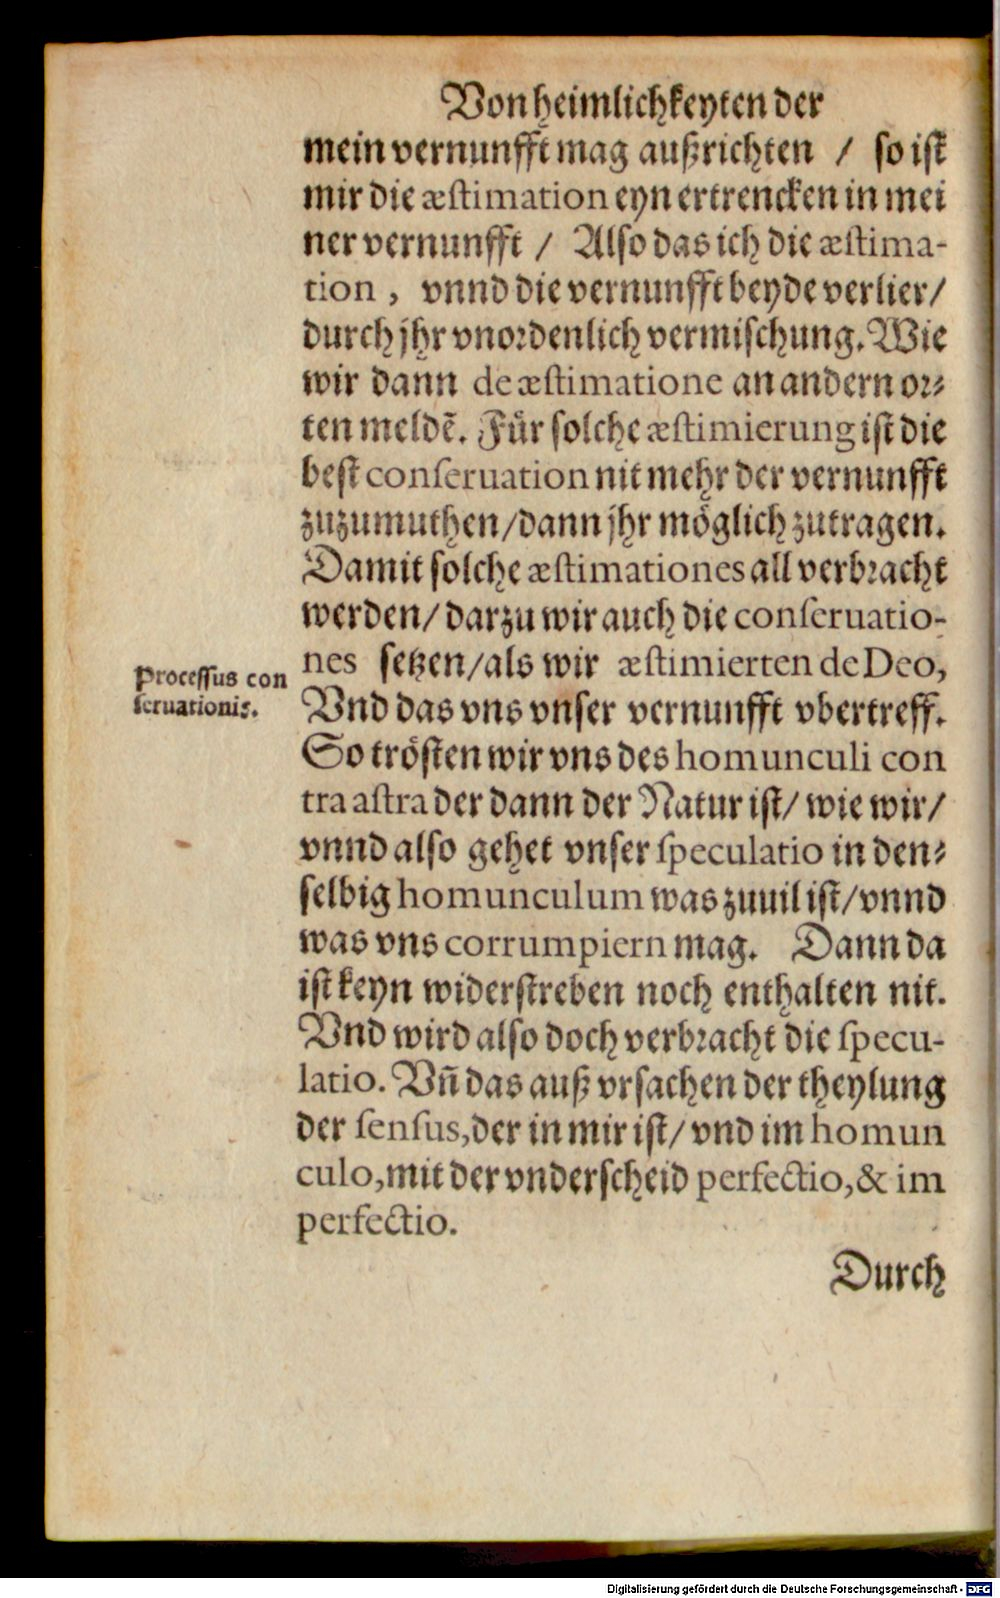 Von heimlichkeyten der
mein vernunfft mag außrichten / so ist
mir die æstimation eyn ertrencken in mei
ner vernunfft / Also das ich die æstima-
tion , vnnd die vernunfft beyde verlier/
durch jhr vnordenlich vermischung. Wie
wir dann de æstimatione an andern or-
ten meldẽ. Für solche æstimierung ist die
best conseruation nit mehr der vernunfft
zuzumuthen/dann jhr möglich zutragen.
Damit solche æstimationes all verbracht
werden/ darzu wir auch die conseruatio-
nes setzen/als wir æstimierten de Deo,
Processus con
seruationis.
Vnd das vns vnser vernunfft vbertreff.
So trösten wir vns des homunculi con
tra astra der dann der Natur ist/ wie wir/
vnnd also gehet vnser speculatio in den-
selbig homunculum was zuuil ist/vnnd
was vns corrumpiern mag. Dann da
ist keyn widerstreben noch enthalten nit.
Vnd wird also doch verbracht die specu-
latio. Vñ das auß vrsachen der theylung
der sensus,der in mir ist/ vnd im homun
culo,mit der vnderscheid perfectio,& im
perfectio.
Durch
Digitalisierung gefördert durch die Deutsche Forschungsgemeinschaft - DFG